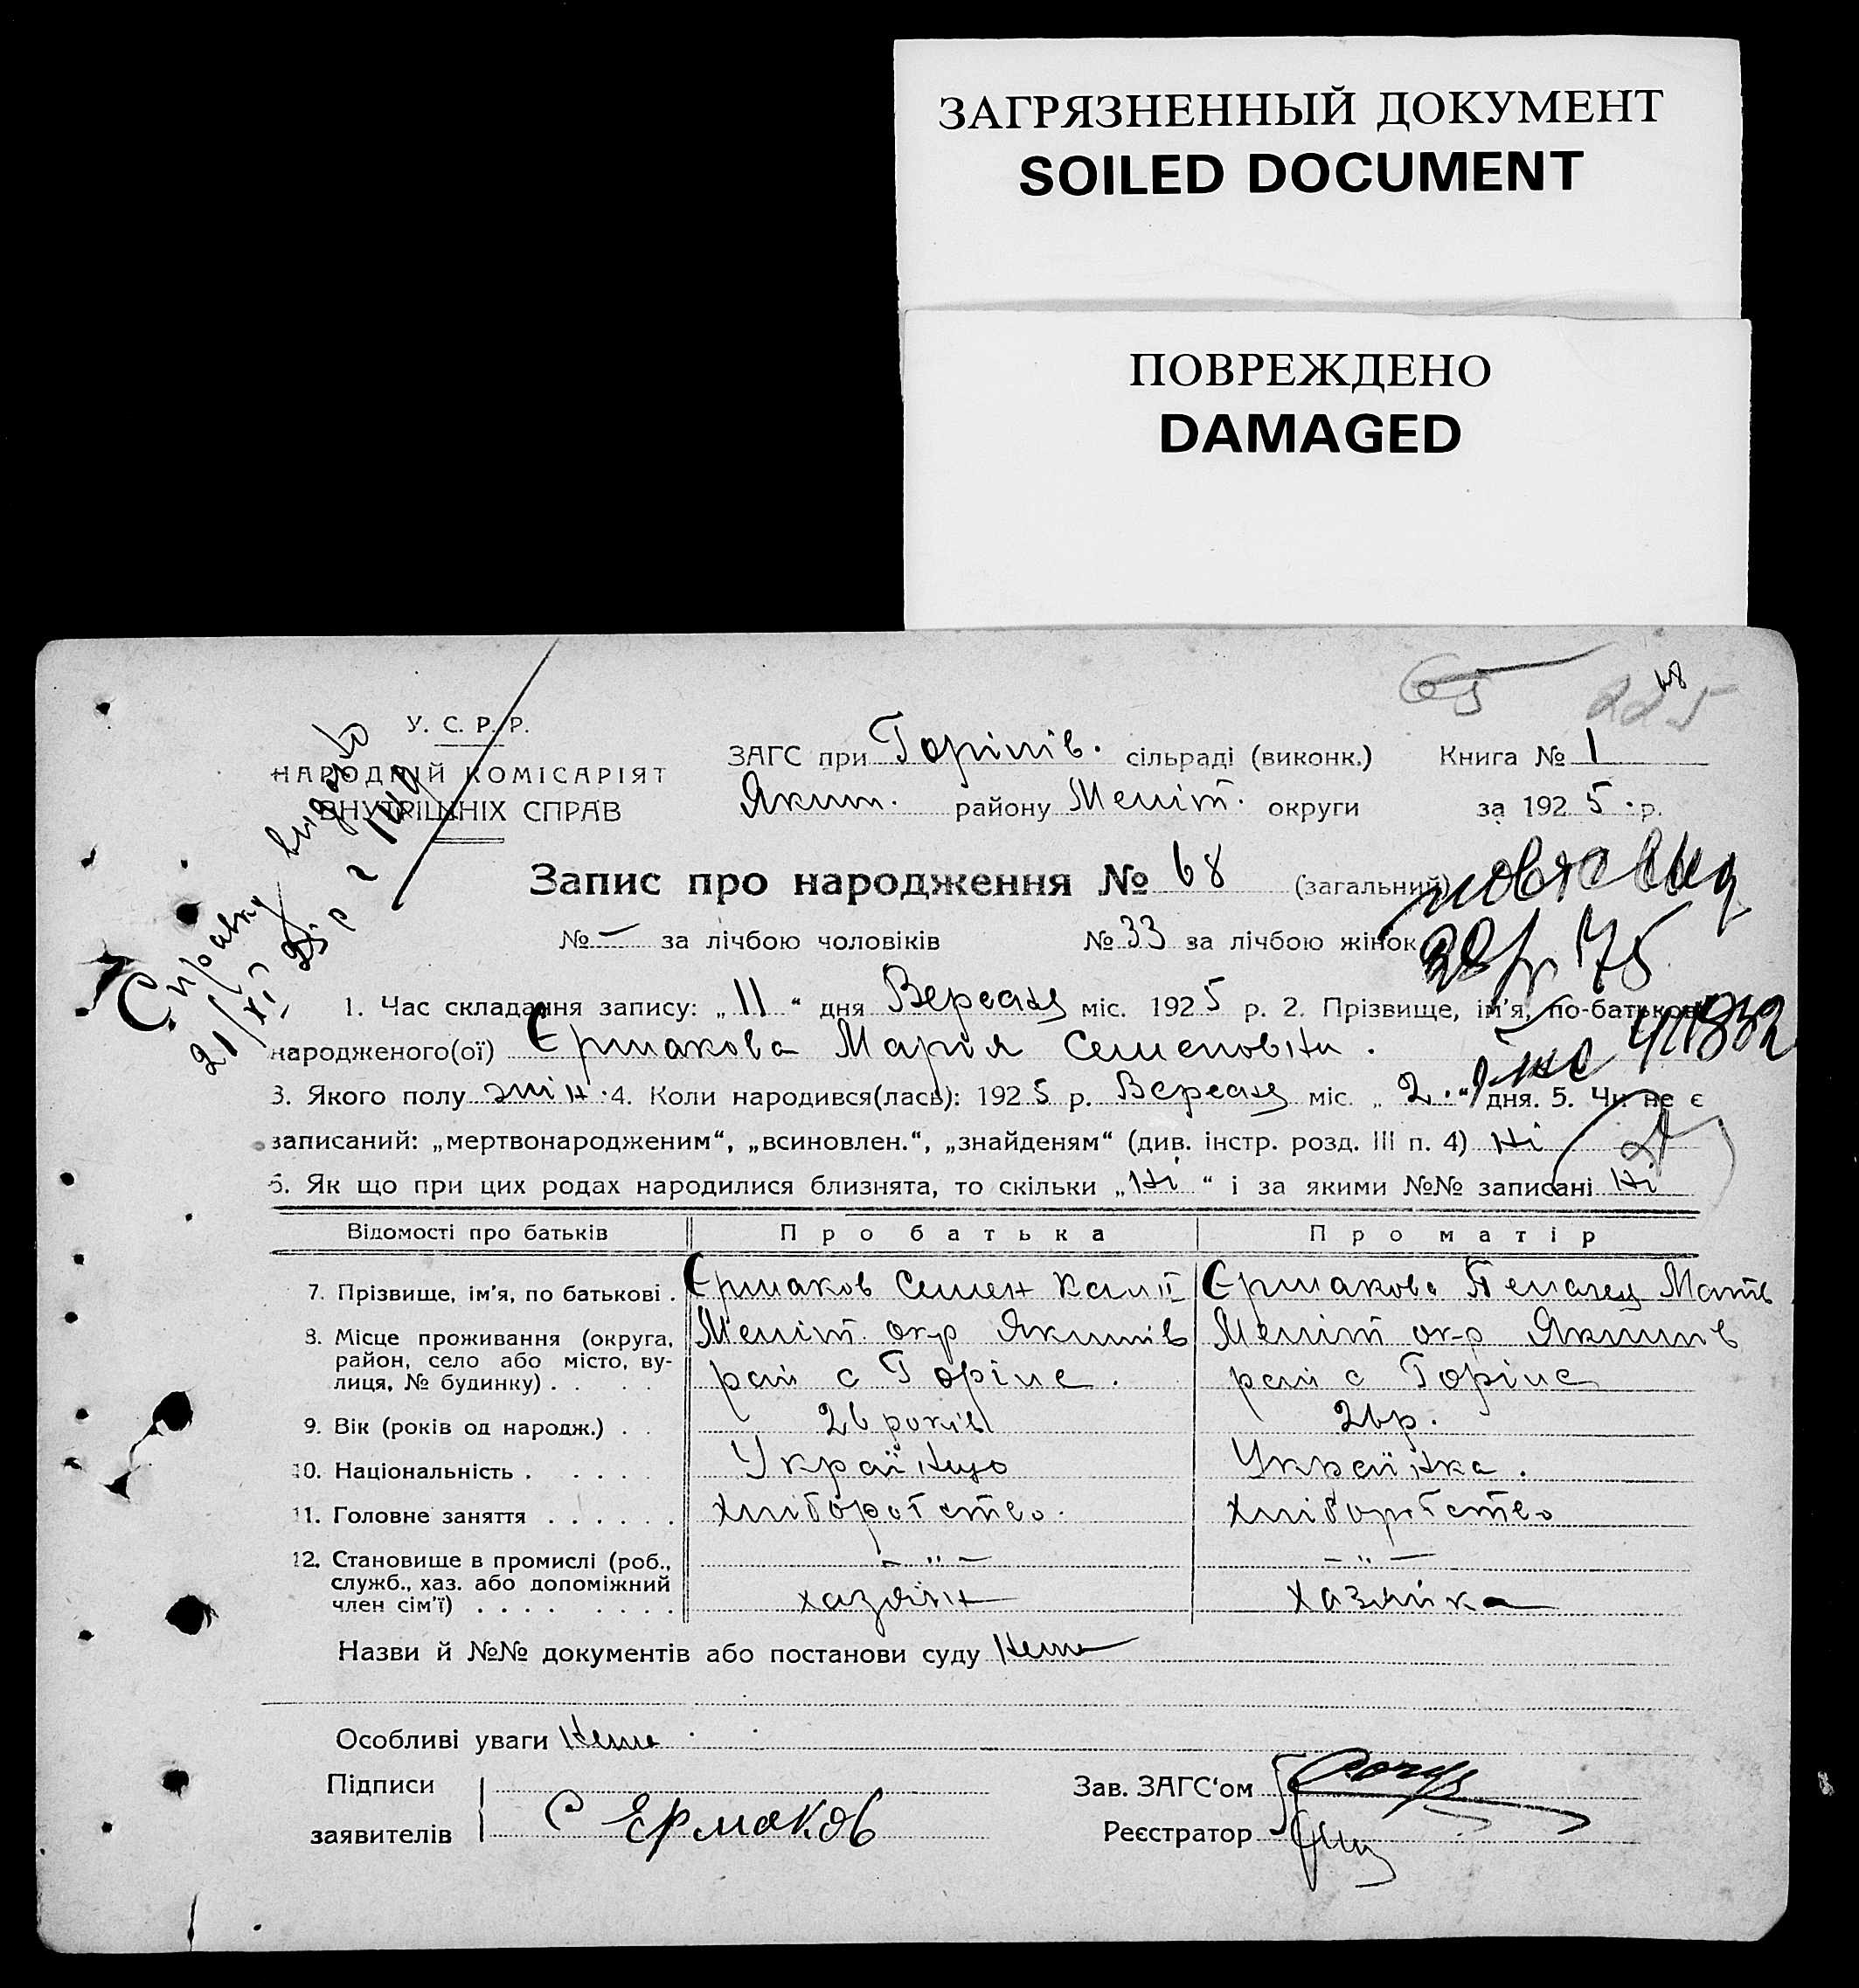 ЗАГРЯЗНЕННЫЙ ДОКУМЕНТ
SOILED DOCUMENT
ПОВРЕЖДЕНО
DAMAGED
65 225 48
У. С. Р. Р.
НАРОДНІЙ КОМІСАРІЯТ
ВНУТРІШНІХ СПРАВ
ЗАГС при Горілів. сільраді (виконк.) Книга № 1
Яким. району Меліт. округи за 1925 р.
Справку видано
21/XI
Запис про народження № 68 (загальний)
№ – за лічбою чоловіків № 33 за лічбою жінок
75
1. Час складання запису: „11“ дня Вересня міс. 1925 р. 2. Прізвище, ім'я, по-батькові
народженого(ої) Єрмакова Марія Семеновна.
3. Якого полу жін. 4. Коли народився(лась): 1925 р. Вересня міс. „2.“ дня. 5. Чи не є
записаний: „мертвонародженим“, „всиновлен.“, „знайденям“ (див. інстр. розд. III п. 4) Ні
6. Як що при цих родах народилися близнята, то скільки „Ні“ і за якими №№ записані Ні
Відомості про батьків Про батька Про матір
7. Прізвище, ім'я, по батькові . Єрмаков Семен Калі Єрмакова Пелагея Матв
8. Місце проживання (округа, район, село або місто, вулиця, № будинку) . . . . Меліт окр Якимів Меліт ок-р Якимів
рай с Горіле. рай с Горіле
9. Вік (років од народж.) . . 26 років 26 р.
10. Національність . . . . . . Українцю Українка.
11. Головне заняття . . . . . . хліборобство. хліборобство
12. Становище в промислі (роб., служб., хаз. або допоміжний член сім'ї) . . . . . . . . – „ – – „ –
хазяїн хазяйка
Назви й №№ документів або постанови суду Нема
Особливі уваги Нема
Підписи
заявителів С Ермаков
Зав. ЗАГС'ом
Реєстратор